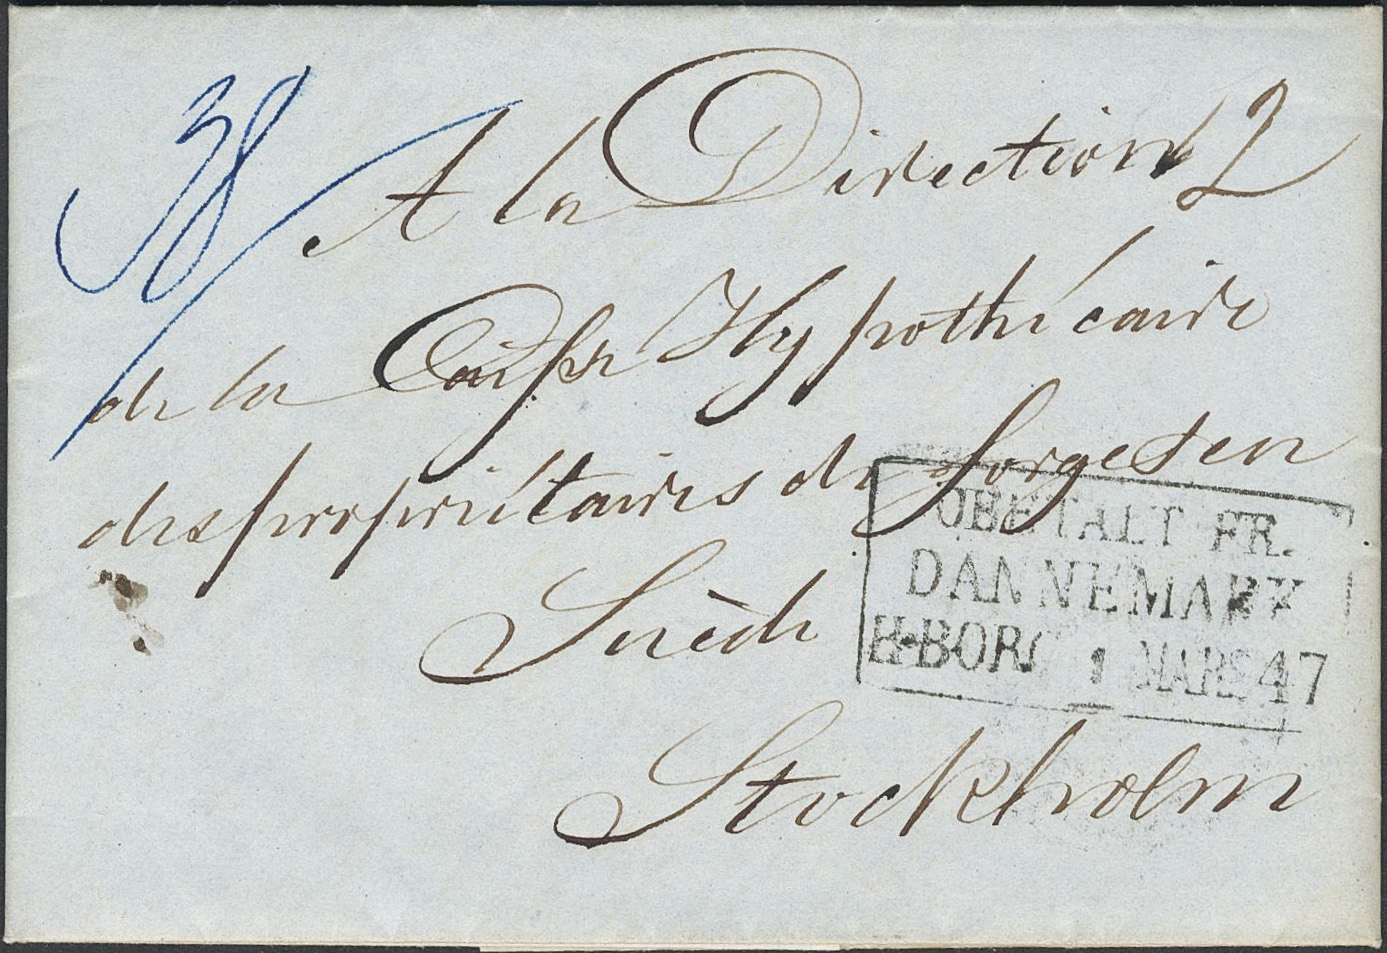 38
A la Direction 2
de la Caisse Hypothécaire
des propriétaires de forges en
Suède
Stockholm
OBETALT FR.
DANNEMARK
H-BORG 1 MARS 47